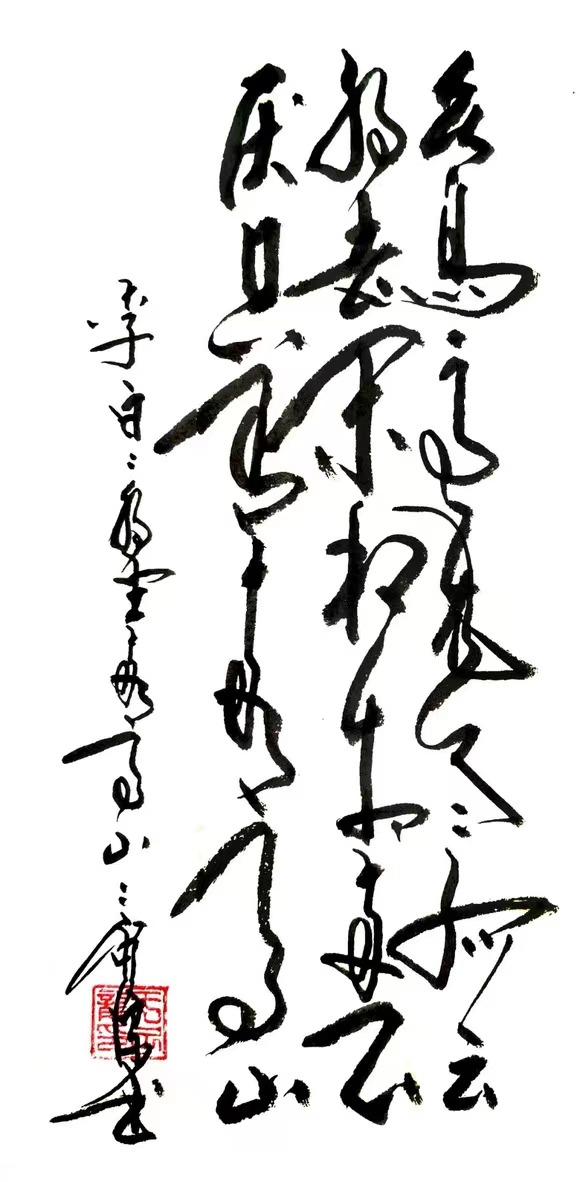 众鸟高飞尽孤云
独去闲相看两不
厌只有敬亭山
李白独坐敬亭山 书